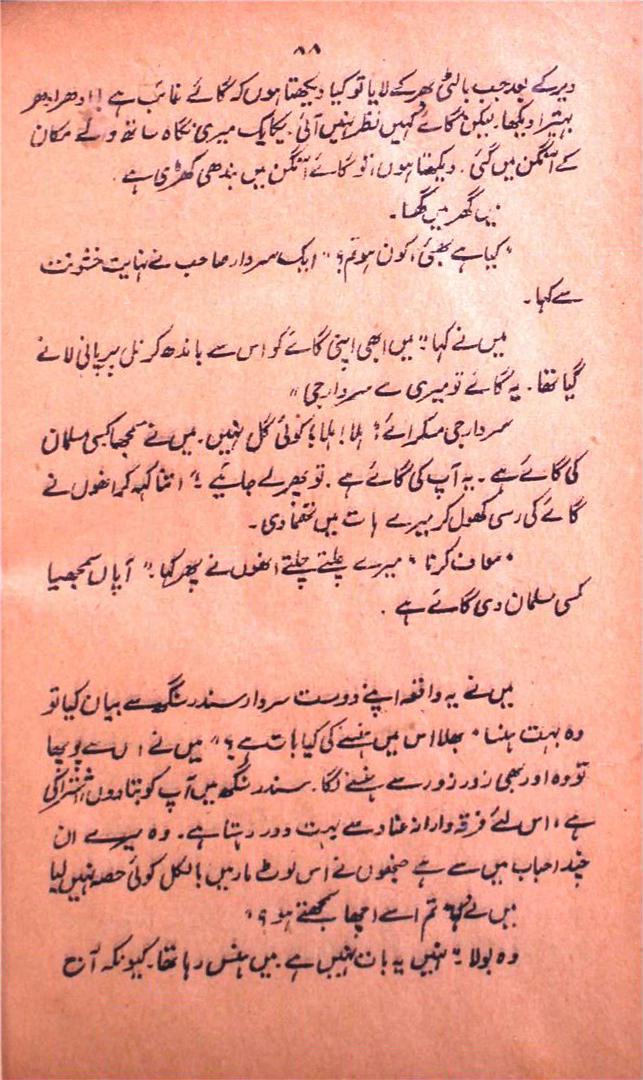 ۸۸
دیر کے بعد جب بالٹی بھر کے لایا تو کیا دیکھتا ہوں کہ گائے غائب ہے !! ادھر ادھر
بہتیرا دیکھا۔ لیکن گائے کہیں نظر نہیں آئی۔ یکایک میری نگاہ ساتھ والے مکان
کے آنگن میں گئی۔ دیکھتا ہوں، تو گائے آنگن میں بندھی کھڑی ہے۔
میں گھر میں گھسا۔
"کیا ہے بھئی، کون ہو تم؟" ایک سردار صاحب نے نہایت خشونت
سے کہا۔
میں نے کہا "میں ابھی اپنی گائے کو اس سے باندھ کر نل پر پانی لانے
گیا تھا۔ یہ گائے تو میری ہے سردار جی"
سردار جی مسکرائے "ہلا! ہلا! کوئی گل نہیں۔ میں نے سمجھا کسی مسلمان
کی گائے ہے۔ یہ آپ کی گائے ہے۔ تو پھر لے جائیے۔" اتنا کہہ کر انھوں نے
گائے کی رسی کھول کر میرے ہات میں تھما دی۔
"معاف کرنا" میرے چلتے چلتے انھوں نے پھر کہا۔ "آپاں سمجھیا
کسی مسلمان دی گائے ہے۔
میں نے یہ واقعہ اپنے دوست سردار سندر سنگھ سے بیان کیا تو
وہ بہت ہنسا "بھلا اس میں ہنسنے کی کیا بات ہے؟" میں نے اس سے پوچھا
تو وہ اور بھی زور زور سے ہنسنے لگا۔ سندر سنگھ میں آپ کو بتا دوں، اشتراکی
ہے، اس لئے فرقہ وارانہ عناد سے بہت دور رہتا ہے۔ وہ میرے ان
چند احباب میں سے ہے جنھوں نے اس لوٹ مار میں بالکل کوئی حصہ نہیں لیا
میں نے کہا "تم اسے اچھا سمجھتے ہو؟"
وہ بولا۔ "نہیں یہ بات نہیں ہے۔ میں ہنس رہا تھا۔ کیونکہ آج